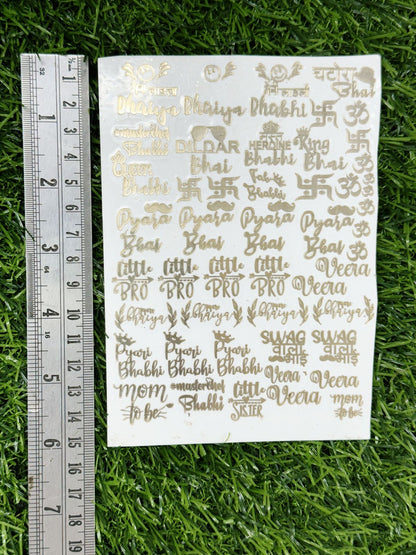 चटोरा
Bhaiya Bhaiya Bhabhi Bhai
masterchef DILDAR HEROINE King
Bhabhi Bhai Bhabhi Bhai
Queen
Bhabhi Bhabhi
Pyara Pyara Pyara Pyara
Bhai Bhai Bhai Bhai
little little little little Veera
BRO BRO BRO BRO Veera
bhaiya bhaiya bhaiya bhaiya
Pyari Pyari Pyari SWAG SWAG
Bhabhi Bhabhi Bhabhi
mom masterchef little Veera Veera
to be Bhabhi SISTER Veera mom
to be
1 2 3 4 5 6 7
1 2 3 4 5 6 7 8 9 10 11 12 13 14 15 16 17 18 19